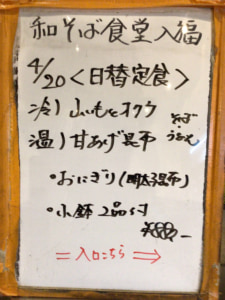 和そば食堂入福
4/20<日替定食>
冷)山いもとオクラ
そば
うどん
温)甘あげ昆布
・おにぎり(明太昆布)
・小鉢2品付
¥880-
=入口こちら⇒